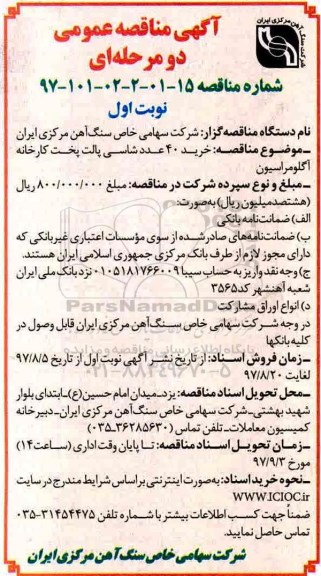 شرکت سنگ آهن مرکزی ایران
آگهی مناقصه عمومی
دو مرحله‌ای
شماره مناقصه ۱۵-۰۱-۲-۰۲-۱۰۱-۹۷
نوبت اول
نام دستگاه مناقصه‌گزار: شرکت سهامی خاص سنگ‌آهن مرکزی ایران
ـ موضوع مناقصه: خرید ۴۰ عدد شاسی پالت پخت کارخانه
آگلومراسیون
ـ مبلغ و نوع سپرده شرکت در مناقصه: مبلغ ۸۰۰/۰۰۰/۰۰۰ ریال
(هشتصد میلیون ریال) به‌صورت:
الف) ضمانت‌نامه بانکی
ب) ضمانت‌نامه‌های صادرشده از سوی مؤسسات اعتباری غیربانکی که
دارای مجوز لازم از طرف بانک مرکزی جمهوری اسلامی ایران هستند.
ج) وجه نقد واریز به حساب سیبا ۰۱۰۵۱۸۱۷۶۶۰۰۹ نزد بانک ملی ایران
شعبه آهنشهر کد ۳۵۶۵
د) انواع اوراق مشارکت
در وجه شرکت سهامی خاص سنگ‌آهن مرکزی ایران قابل وصول در
کلیه بانکها
ParsNamadData
ـ زمان فروش اسناد: از تاریخ نشر آگهی نوبت اول از تاریخ ۹۷/۸/۵
لغایت ۹۷/۸/۲۰
۰۲۱-۸۸۳۴۹۶۷۰-۵
ـ محل تحویل اسناد مناقصه: یزد ـ میدان امام حسین(ع) ـ ابتدای بلوار
شهید بهشتی ـ شرکت سهامی خاص سنگ‌آهن مرکزی ایران ـ دبیرخانه
کمیسیون معاملات ـ تلفن تماس (۳۶۲۸۵۶۳۰-۰۳۵)
ـ زمان تحویل اسناد مناقصه: تا پایان وقت اداری (ساعت ۱۴)
مورخ ۹۷/۹/۳
ـ نحوه خرید اسناد: به‌صورت اینترنتی براساس شرایط مندرج در سایت
WWW.ICIOC.ir
ضمناً جهت کسب اطلاعات بیشتر با شماره تلفن ۳۱۴۵۴۴۷۵-۰۳۵
تماس حاصل نمایید.
شرکت سهامی خاص سنگ آهن مرکزی ایران